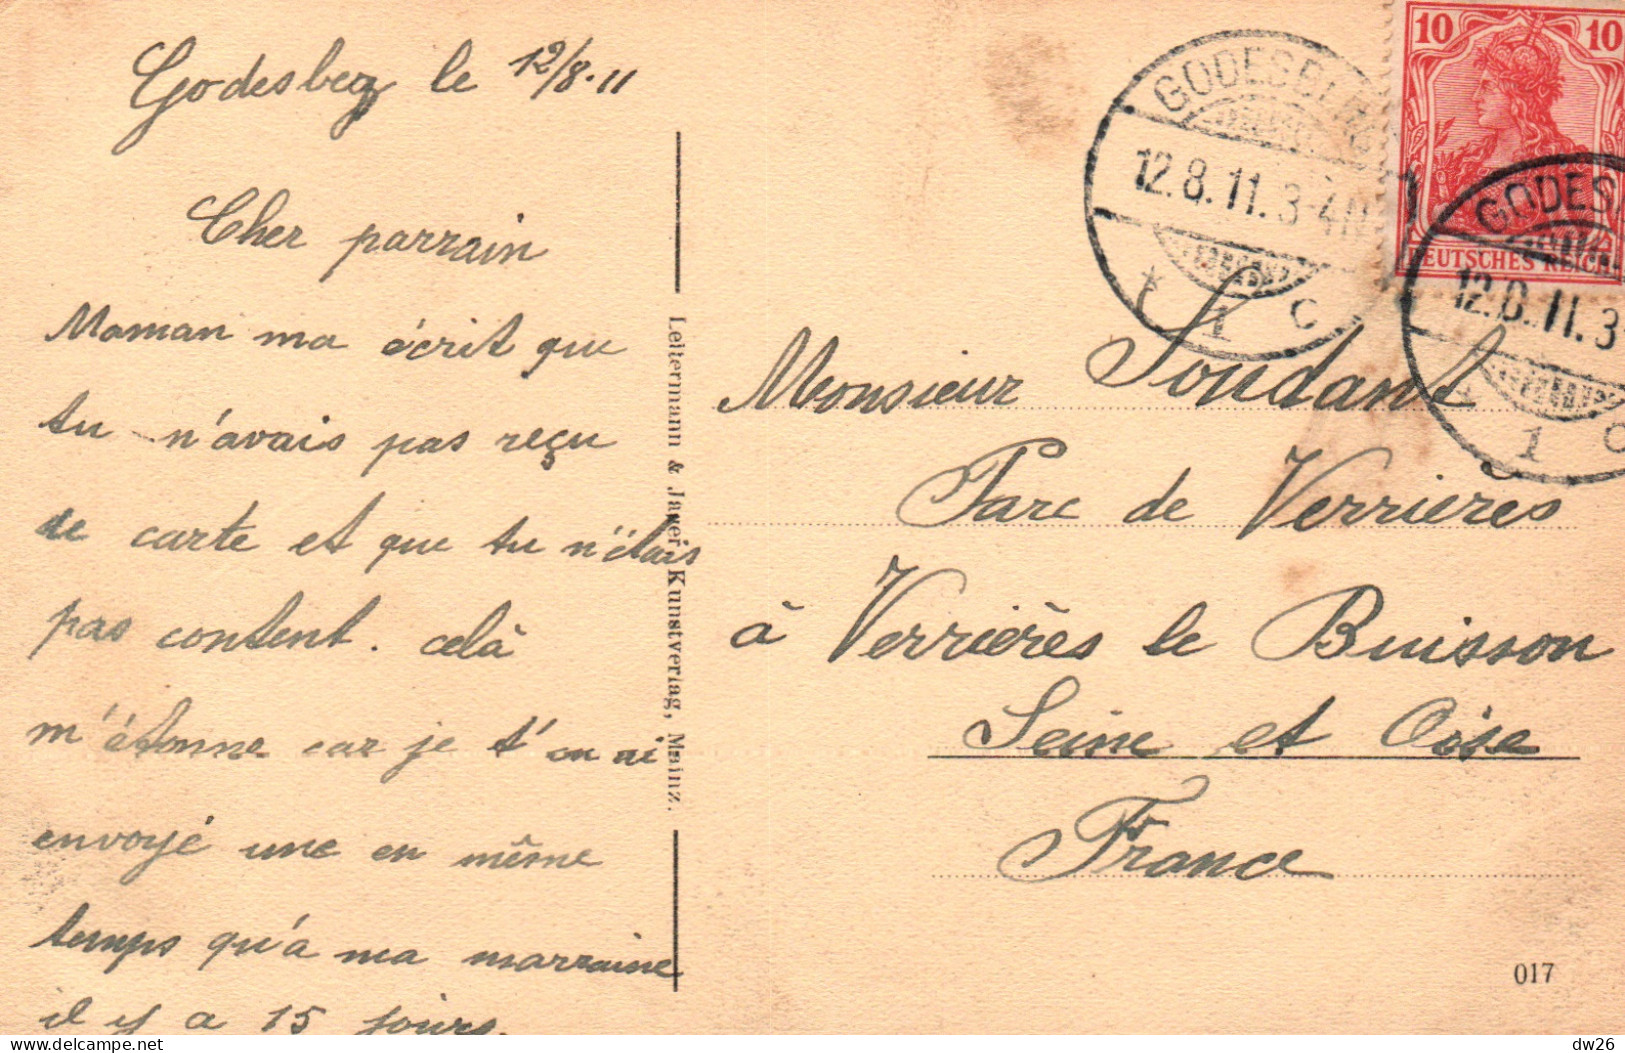 Godesberg le 12/8.11
Cher parrain
Maman ma écrit que
tu n'avais pas reçu
de carte et que tu n'étais
pas content. celà
m'étonne car je t'en ai
envoyé une en même
temps qu'à ma marraine
il y a 15 jours.
Leitermann & Jager, Kunstverlag, Mainz.
GODESBERG
12.8.11.3-4N
* 1 C
10 10
DEUTSCHES REICH
GODES
12.8.11.3-
* 1 C
Monsieur Soudant
Parc de Verrieres
à Verrières le Buisson
Seine et Oise
France
017
delcampe.net
dw26